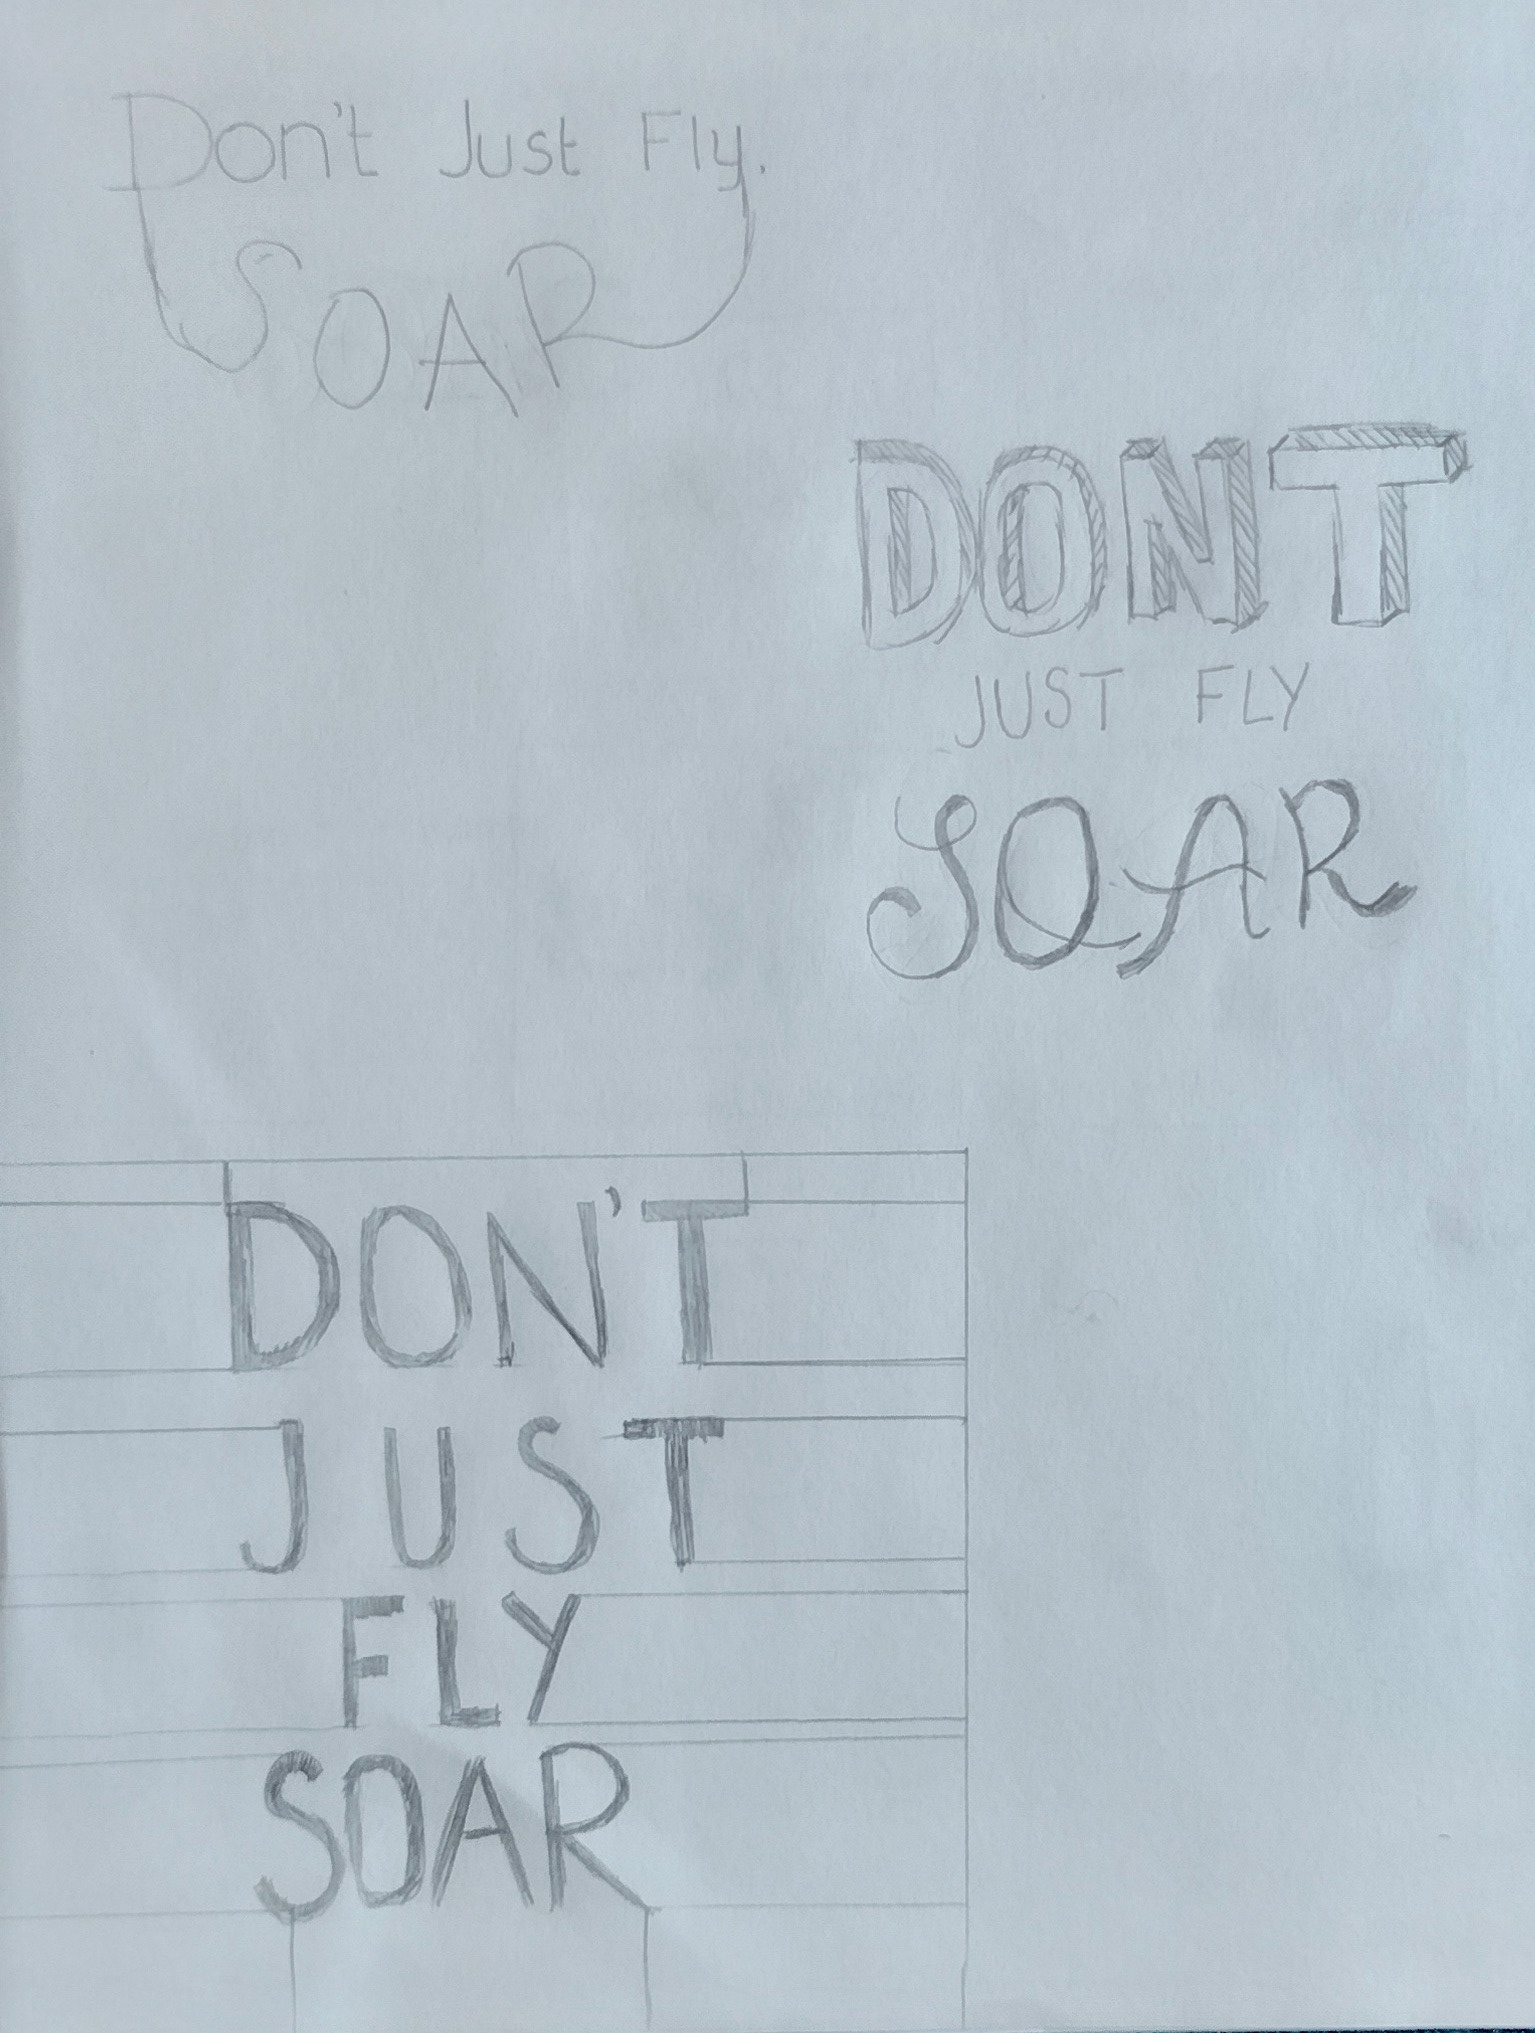 Don't Just Fly.
SOAR
DONT
JUST FLY
SOAR
DON'T
JUST
FLY
SOAR